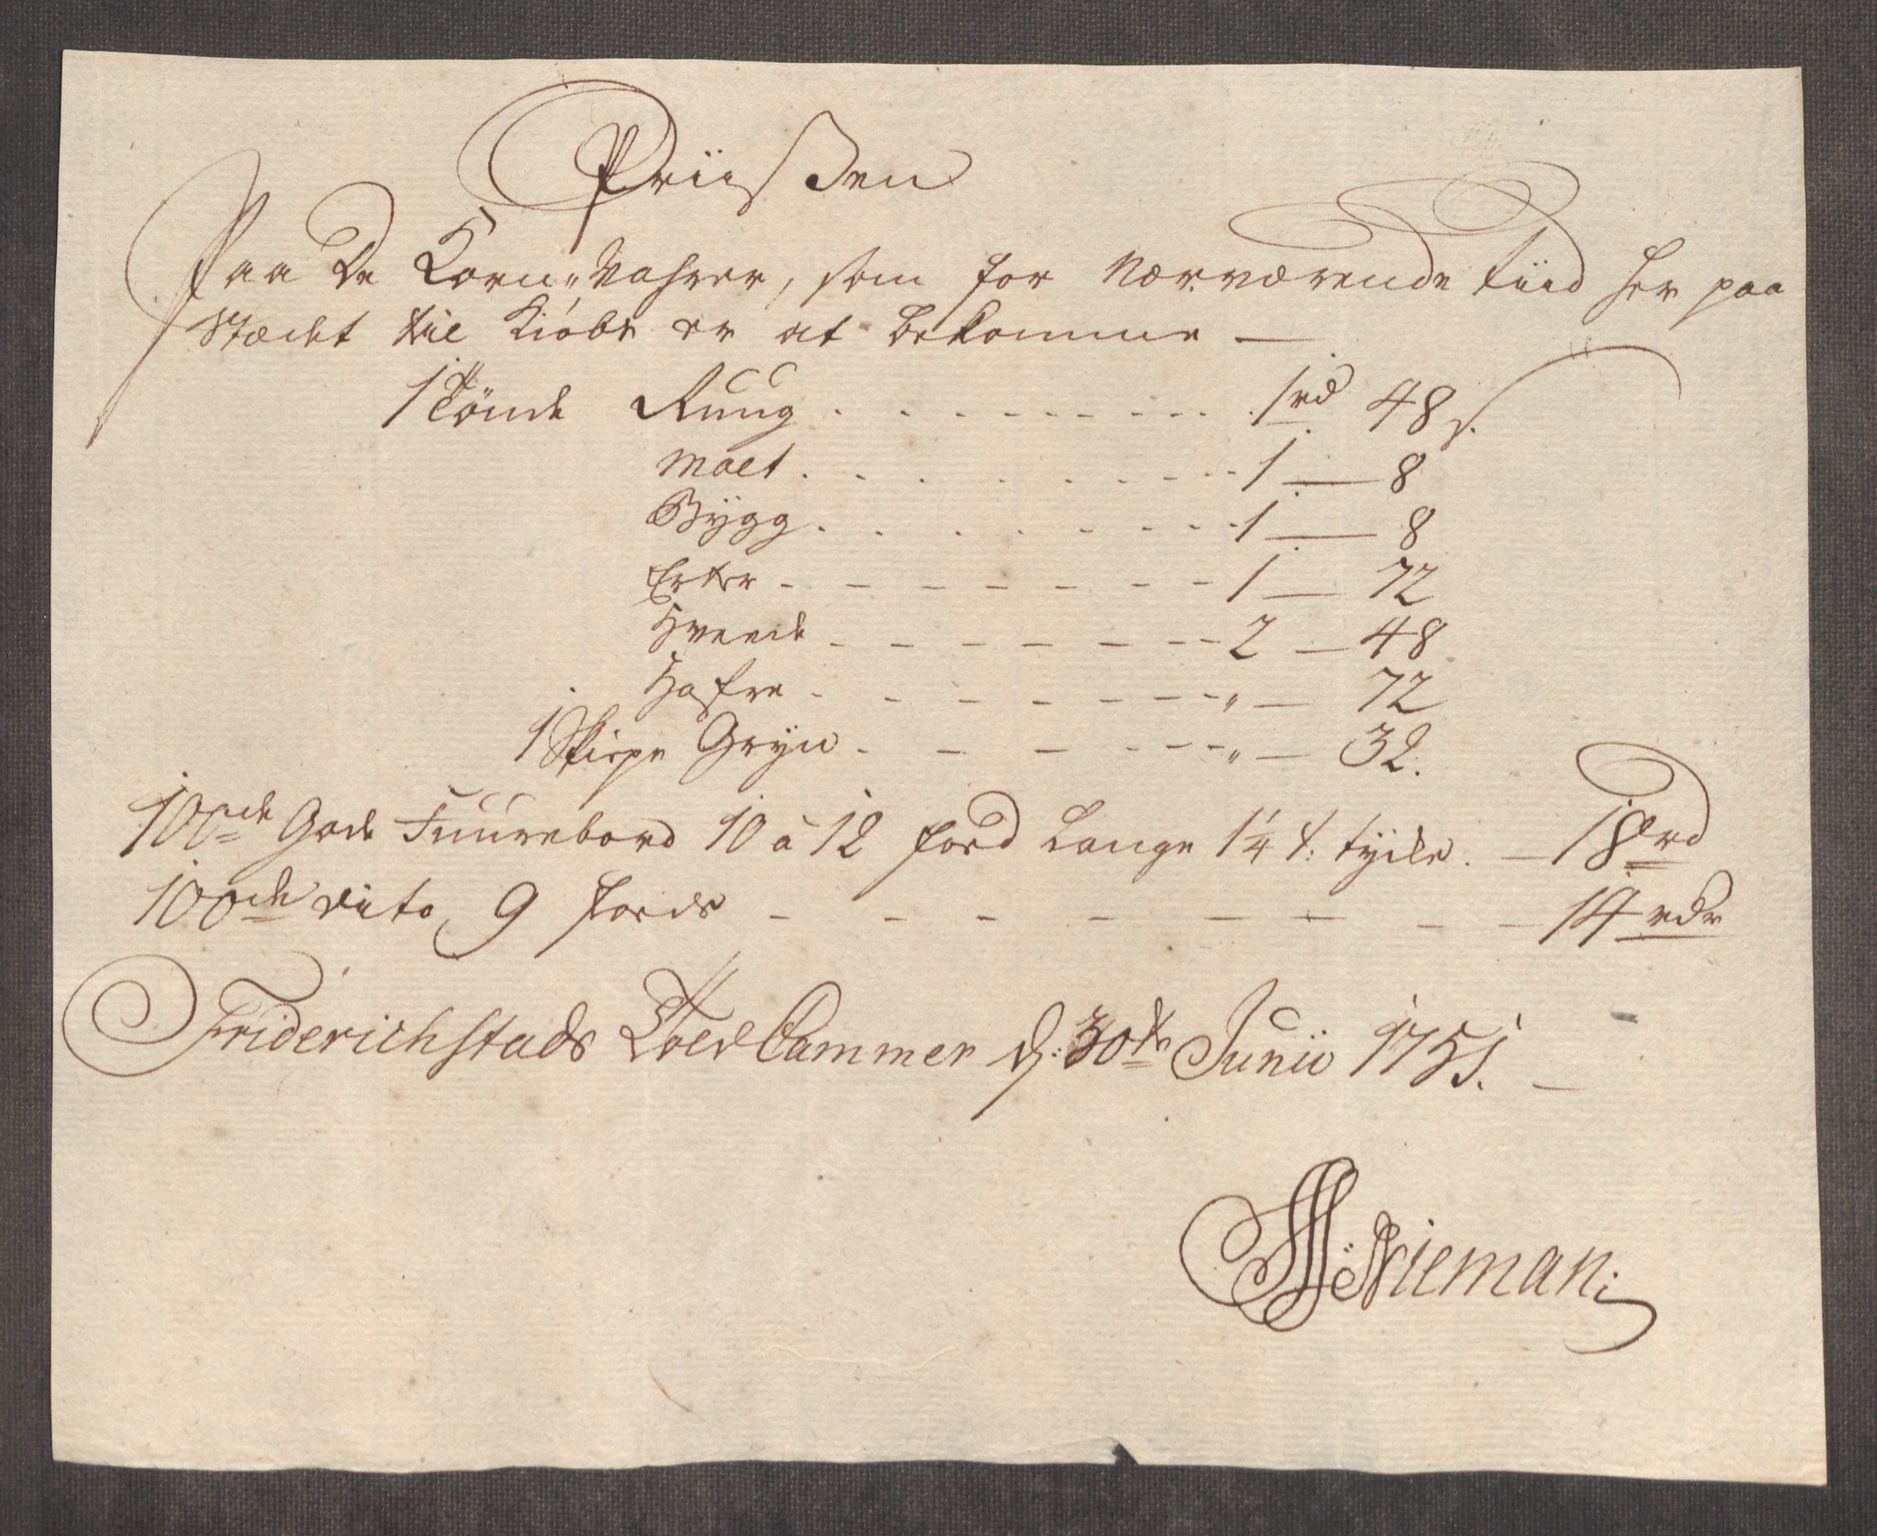 Priisen
Paa De Korn„Vahrer, som for Nærværende Tiid her paa
Stædet til Kiøbs er at bekomme —
1 Tönde Ruug . . . . . . . . . 1 rd 48 s.
Malt . . . . . . . . . 1 — 8
Bÿgg . . . . . . . . . 1 — 8
Erter - - - - - - - - 1 — 72
Hveede - - - - - - - 2 — 48
Hafre - - - - - - - „ — 72
1 Skiepe Grÿn - - - - - - „ — 32.
100de Gode Fuurebord 10 à 12 foed Lange 1 1/4 t: tÿcke. — 18 rd
100de dito 9 foeds - - - - - - - — 14 rdr
Friderichstads Toldcammer d: 30te Junii 1751. —
Nieman